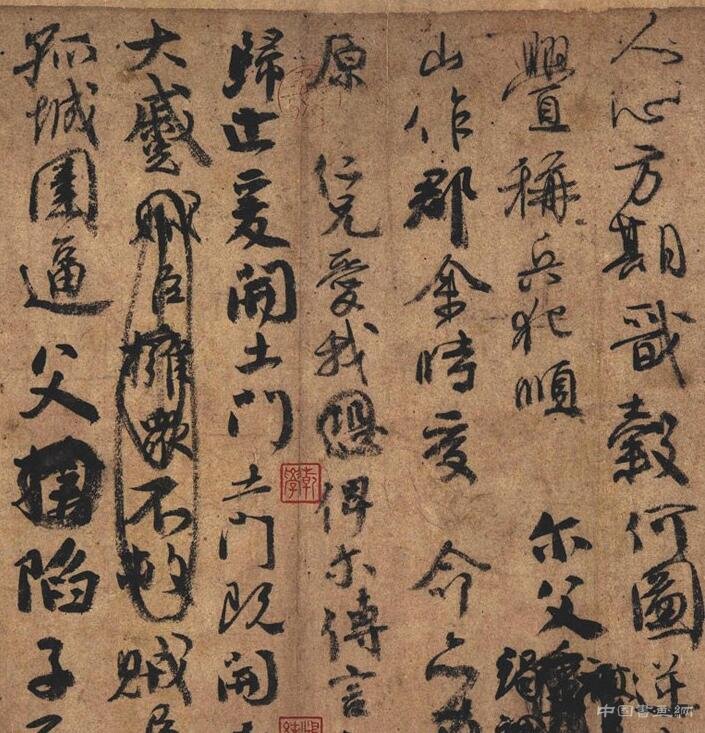 人心方期戩穀何圖逆
釁稱兵犯順 尔父竭誠
山作郡余時受 命亦
原 仁兄愛我恐俾尔傳言
歸止爰開土門土門既開
大蹙賊臣擁衆不救賊臣
孤城圍逼父擒陷子
乾學
中国书画网